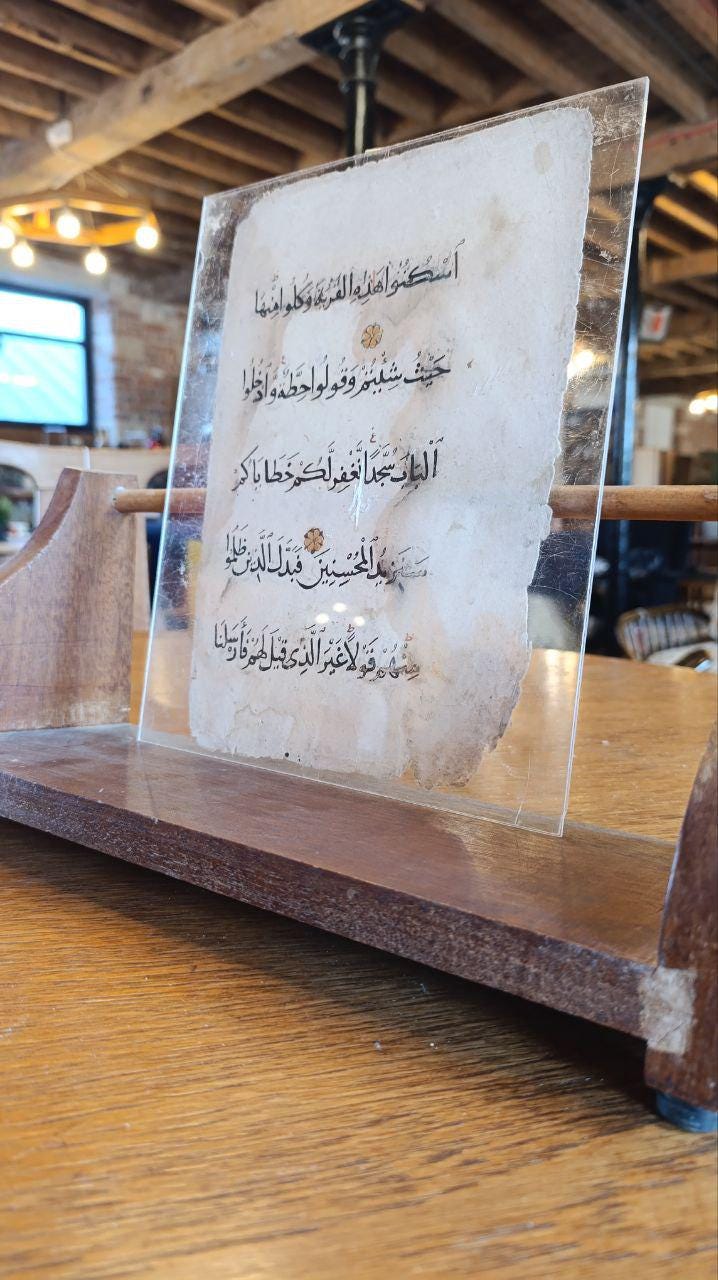 ٱسْكُنُوا هَٰذِهِ ٱلْقَرْيَةَ وَكُلُوا مِنْهَا
حَيْثُ شِئْتُمْ وَقُولُوا حِطَّةٌ وَٱدْخُلُوا
ٱلْبَابَ سُجَّدًا نَّغْفِرْ لَكُمْ خَطَايَاكُمْ
سَنَزِيدُ ٱلْمُحْسِنِينَ فَبَدَّلَ ٱلَّذِينَ ظَلَمُوا
مِنْهُمْ قَوْلًا غَيْرَ ٱلَّذِي قِيلَ لَهُمْ فَأَرْسَلْنَا